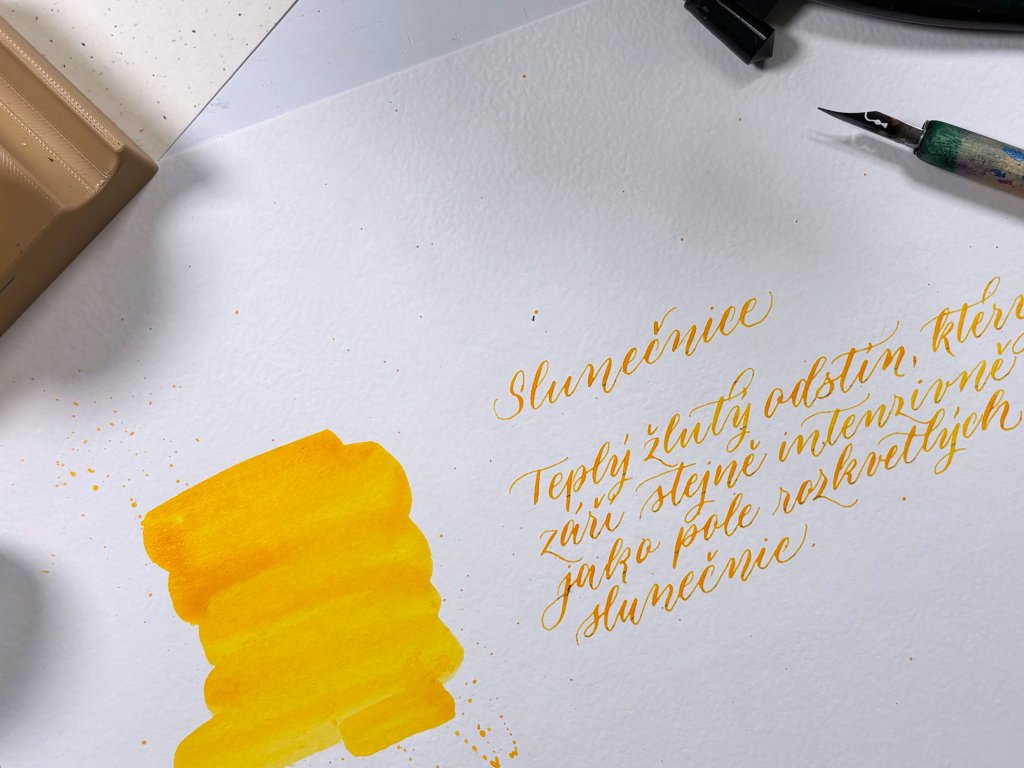 Slunečnice
Teplý žlutý odstín, který
září stejně intenzivně
jako pole rozkvetlých
slunečnic.